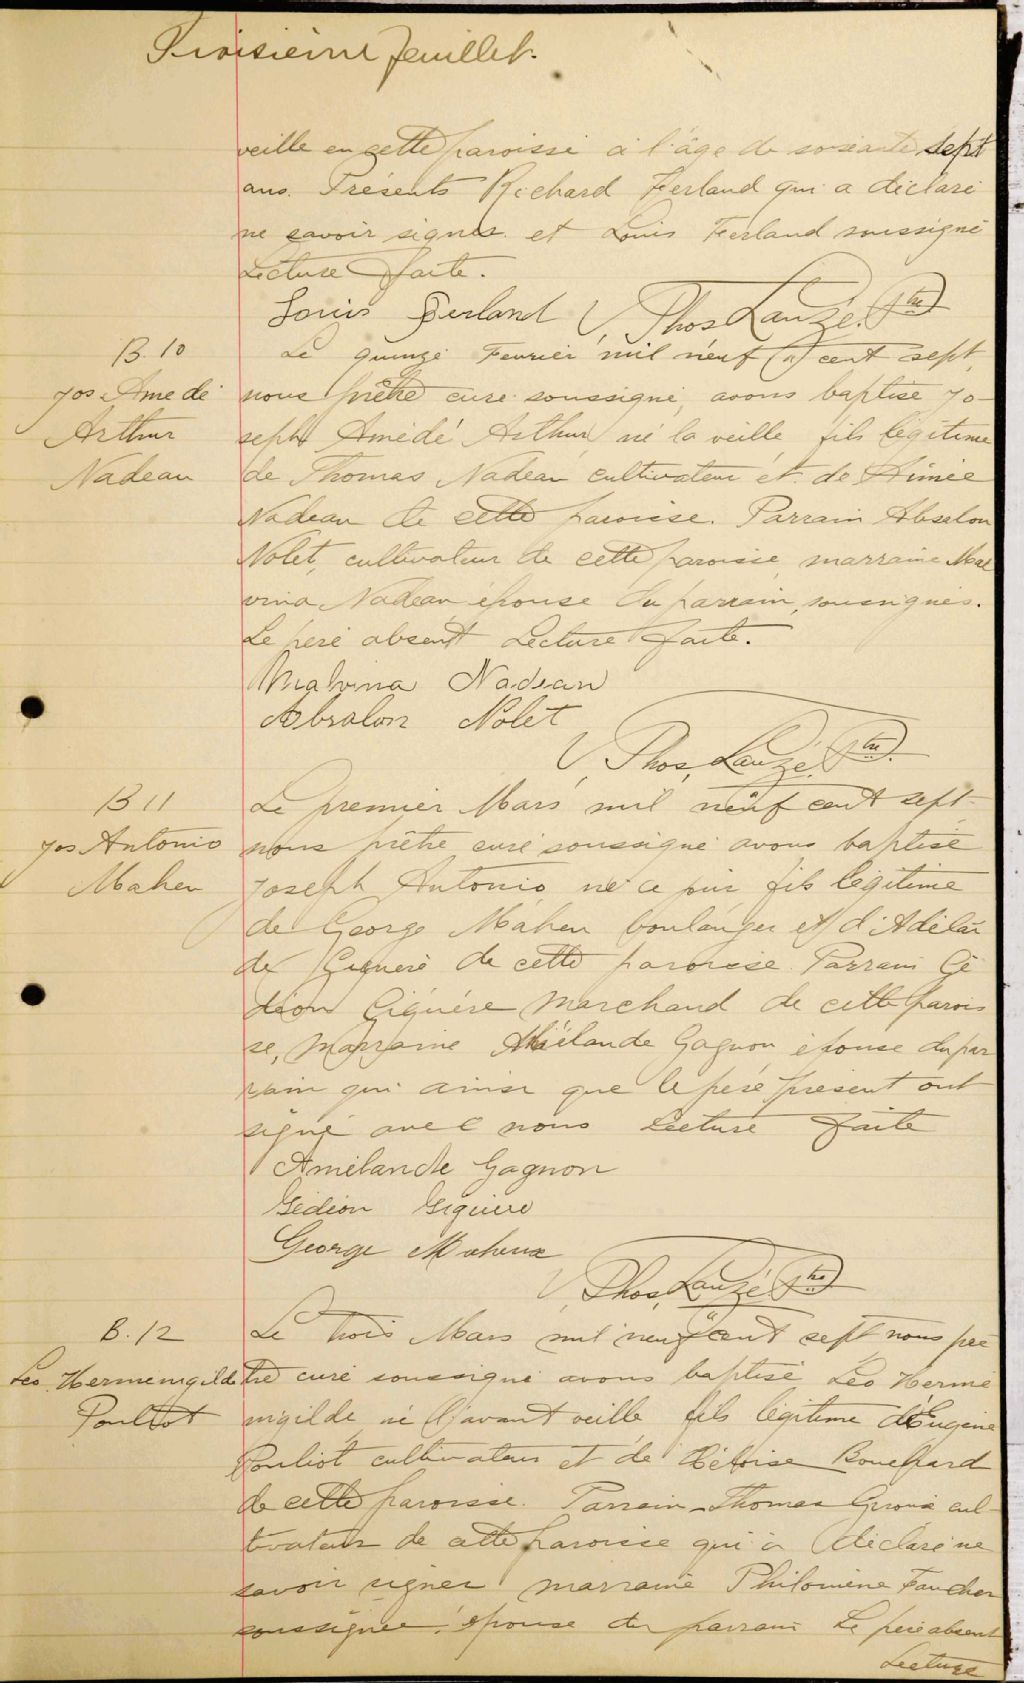 Troisième feuillet.
veille en cette paroisse à l'âge de soixante sept
ans. Présents Richard Ferland qui a déclaré
ne savoir signer et Louis Ferland soussigné
Lecture faite.
Louis Ferland Thos Lauzé. Ptre
B. 10
Jos. Amedé
Arthur
Nadeau
Le quinze Fevrier mil neuf cent sept,
nous prêtre curé soussigné, avons baptisé Jo-
seph Amédé Arthur né la veille fils légitime
de Thomas Nadeau cultivateur et de Aimée
Nadeau de cette paroisse. Parrain Absalon
Nolet, cultivateur de cette paroisse, marraine Mal
vina Nadeau épouse du parrain, soussignés.
Le père absent Lecture faite.
Malvina Nadeau
Absalon Nolet
Thos, Lauzé. Ptre.
B 11
Jos Antonio
Maheu
Le premier Mars mil neuf cent sept
nous prêtre curé soussigné avons baptisé
Joseph Antonio né ce jour fils légitime
de George Maheu boulanger et d'Adélaï
de Giguère de cette paroisse. Parrain Gé
déon Giguére Marchand de cette parois
se, Marraine Gagnon épouse du par
rain qui ainsi que le père présent ont
signé avec nous Lecture faite
Amélande Gagnon
Gédéon Giguere
George Maheux
Thos, Lauzé Ptre
B. 12
Léo Herménigilde
Pouliot
Le trois Mars mil neuf cent sept nous prê
tre curé soussigné avons baptisé Léo Hermé
nigilde, né l'avant veille fils légitime d'Eugène
Pouliot cultivateur et de Héloïse Bouchard
de cette paroisse. Parrain Thomas Giroux cul-
tivateur de cette paroisse qui a déclaré ne
savoir signer marraine Philomène Faucher
soussignée épouse du parrain Le père absent
Lecture